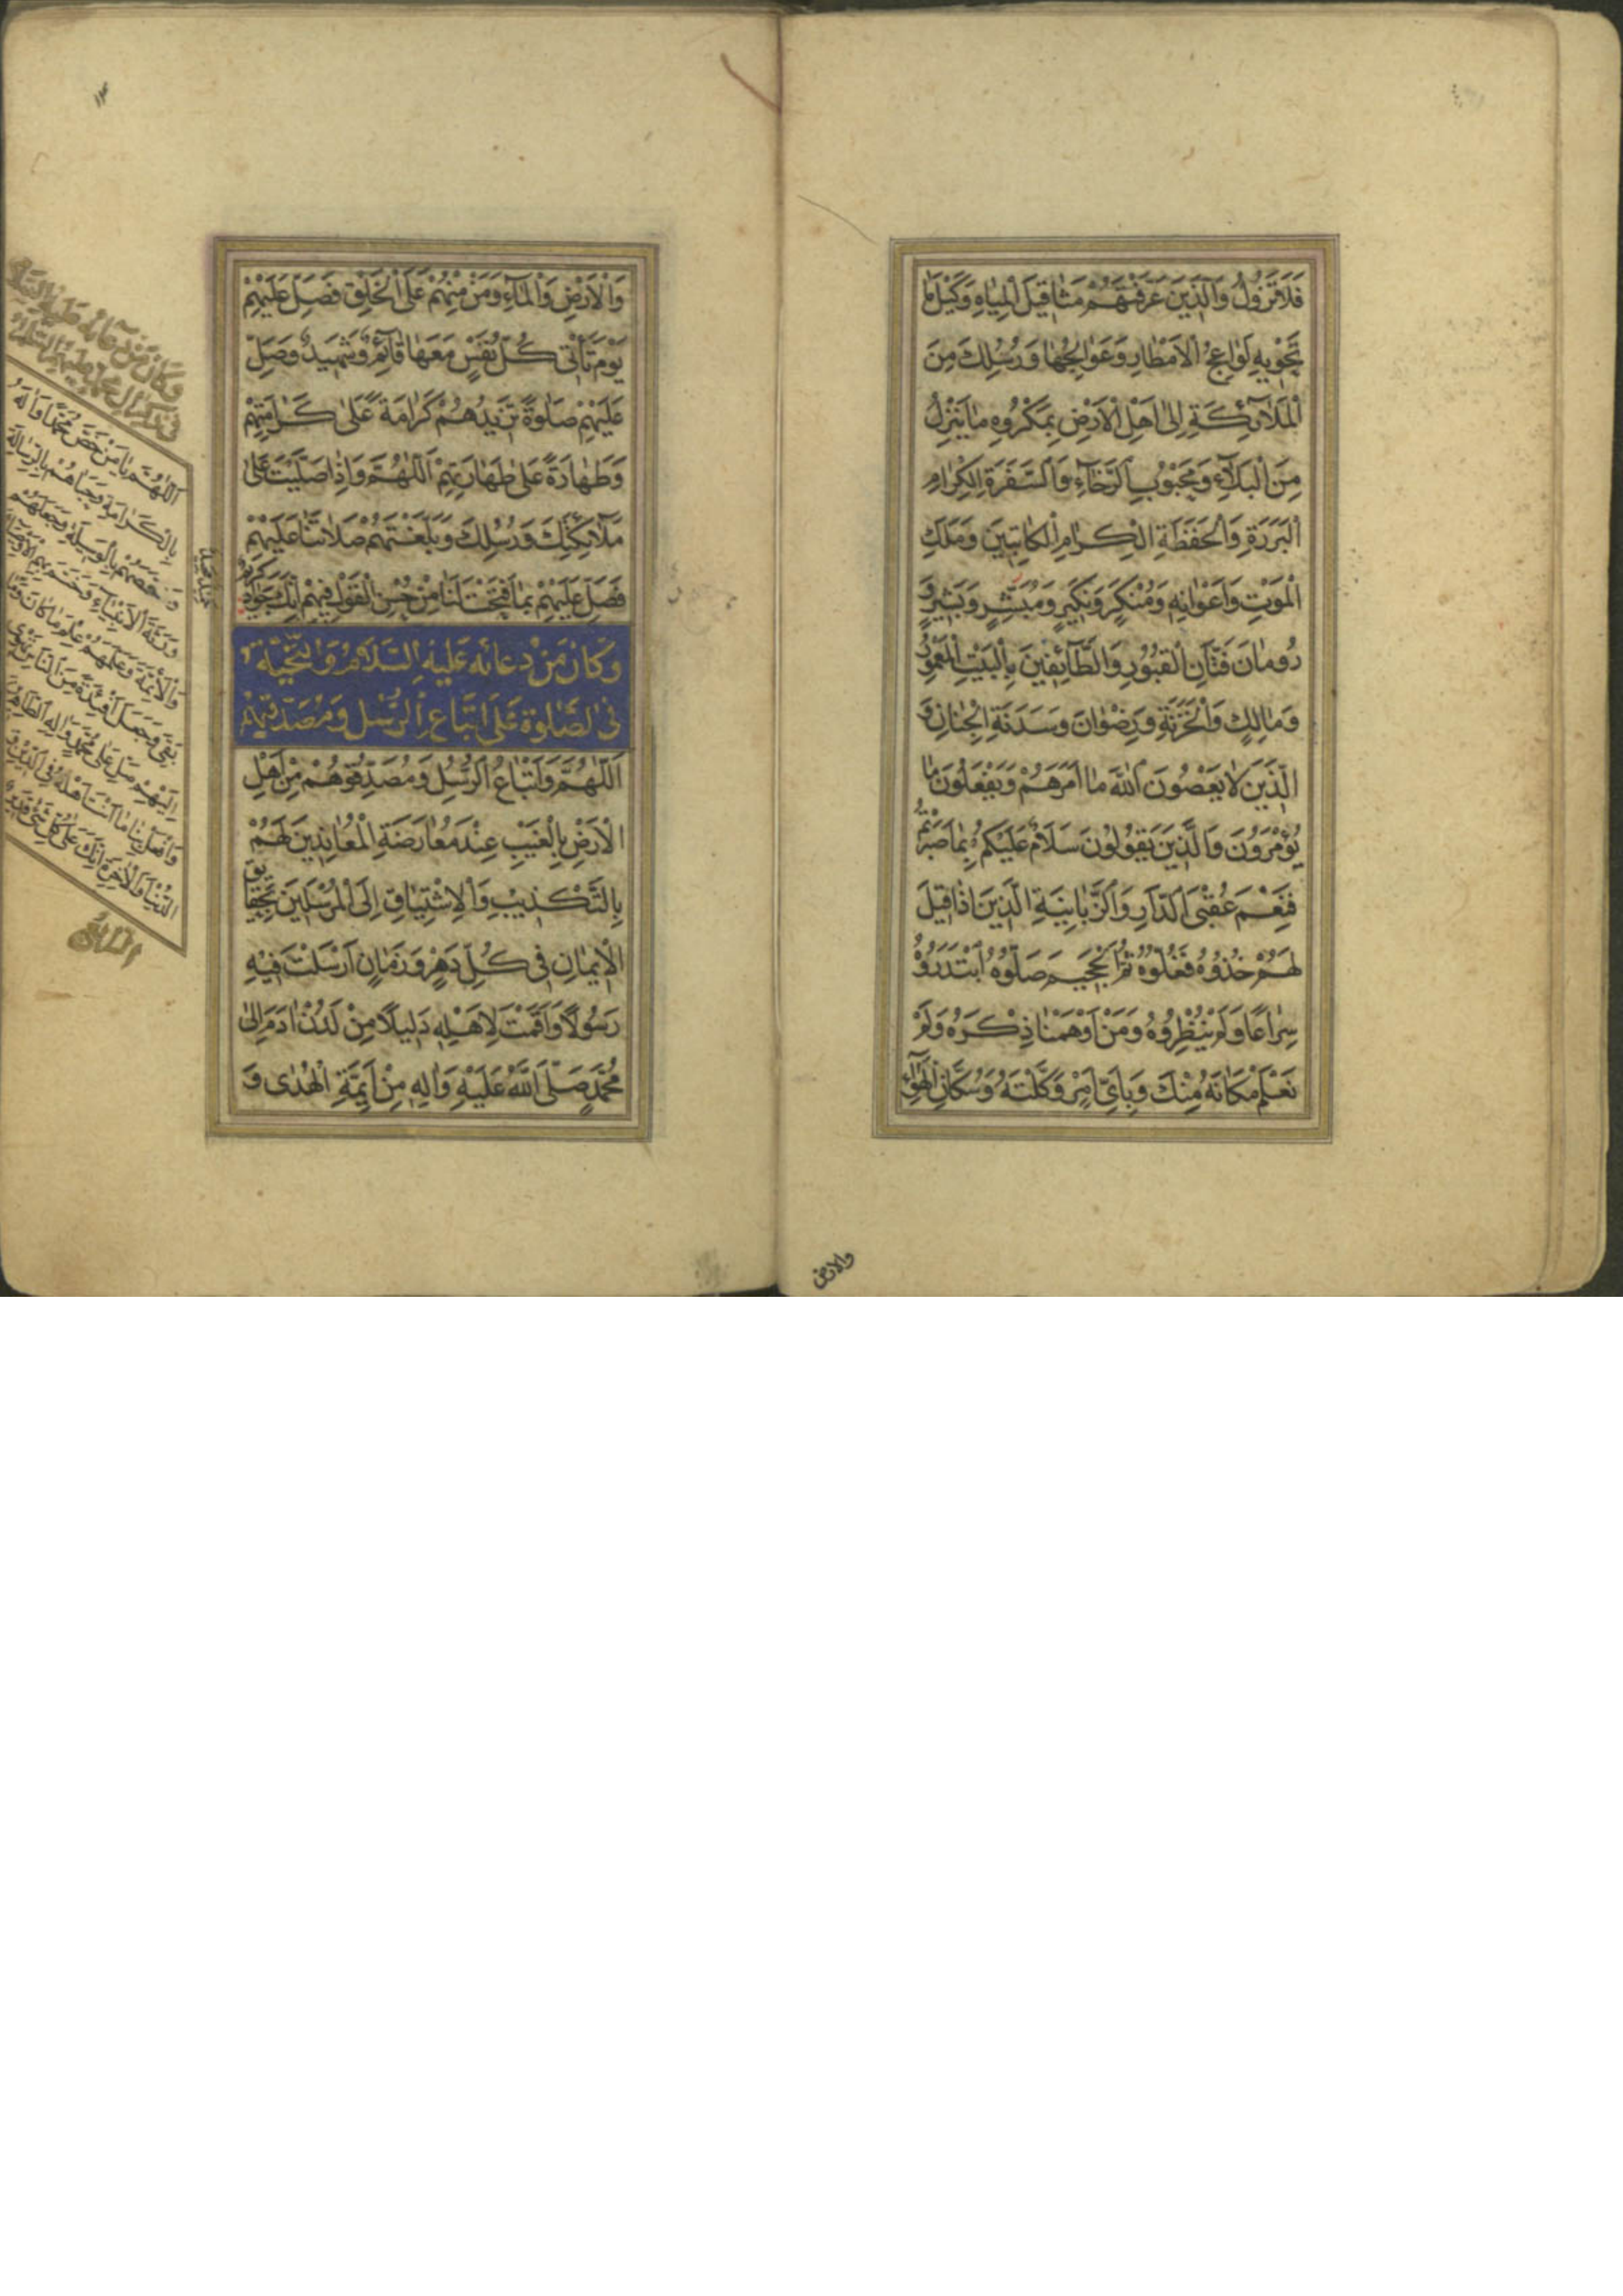 فَلَا تَزُولُ وَالَّذِينَ عَرَّفْتَهُمْ مَثَاقِيلَ الْمِيَاهِ وَكَيْلَ مَا
تَحْوِيهِ لَوَاعِجُ الْأَمْطَارِ وَعَوَالِجُهَا وَرُسُلِكَ مِنَ
الْمَلَائِكَةِ إِلَى أَهْلِ الْأَرْضِ بِمَكْرُوهِ مَا يَنْزِلُ
مِنَ الْبَلَاءِ وَمَحْبُوبِ الرَّخَاءِ وَالسَّفَرَةِ الْكِرَامِ
الْبَرَرَةِ وَالْحَفَظَةِ الْكِرَامِ الْكَاتِبِينَ وَمَلَكِ
الْمَوْتِ وَأَعْوَانِهِ وَمُنْكَرٍ وَنَكِيرٍ وَمُبَشِّرٍ وَبَشِيرٍ وَ
رُومَانَ فَتَّانِ الْقُبُورِ وَالطَّائِفِينَ بِالْبَيْتِ الْمَعْمُورِ
وَمَالِكٍ وَالْخَزَنَةِ وَرِضْوَانَ وَسَدَنَةِ الْجِنَانِ وَ
الَّذِينَ لَا يَعْصُونَ اللهَ مَا أَمَرَهُمْ وَيَفْعَلُونَ مَا
يُؤْمَرُونَ وَالَّذِينَ يَقُولُونَ سَلَامٌ عَلَيْكُمْ بِمَا صَبَرْتُمْ
فَنِعْمَ عُقْبَى الدَّارِ وَالزَّبَانِيَةِ الَّذِينَ إِذَا قِيلَ
لَهُمْ خُذُوهُ فَغُلُّوهُ ثُمَّ الْجَحِيمَ صَلُّوهُ ابْتَدَرُوهُ
سِرَاعًا وَلَمْ يُنْظِرُوهُ وَمَنْ أَوْهَمْنَا ذِكْرَهُ وَلَمْ
نَعْلَمْ مَكَانَهُ مِنْكَ وَبِأَيِّ أَمْرٍ وَكَّلْتَهُ وَسُكَّانِ الْهَوَاءِ
والارض
وَالْأَرْضِ وَالْمَاءِ وَمَنْ مِنْهُمْ عَلَى الْخَلْقِ فَصَلِّ عَلَيْهِمْ
يَوْمَ تَأْتِي كُلُّ نَفْسٍ مَعَهَا قَائِمٌ وَشَهِيدٌ وَصَلِّ
عَلَيْهِمْ صَلَوةً تَزِيدُهُمْ كَرَامَةً عَلَى كَرَامَتِهِمْ
وَطَهَارَةً عَلَى طَهَارَتِهِمْ اَللّٰهُمَّ وَإِذَا صَلَّيْتَ عَلَى
مَلَائِكَتِكَ وَرُسُلِكَ وَبَلَّغْتَهُمْ صَلَاتَنَا عَلَيْهِمْ
فَصَلِّ عَلَيْهِمْ بِمَا فَتَحْتَ لَنَا مِنْ حُسْنِ الْقَوْلِ فِيهِمْ إِنَّكَ جَوَادٌ كَرِيمٌ
وَكَانَ مِنْ دُعَائِهِ عَلَيْهِ السَّلَامُ وَالتَّحِيَّةُ
فِي الصَّلَوةِ عَلَى اتِّبَاعِ الرُّسُلِ وَمُصَدِّقِيهِمْ
اَللّٰهُمَّ وَاَتْبَاعُ الرُّسُلِ وَمُصَدِّقُوهُمْ مِنْ أَهْلِ
الْأَرْضِ بِالْغَيْبِ عِنْدَ مُعَارَضَةِ الْمُعَانِدِينَ لَهُمْ
بِالتَّكْذِيبِ وَالِاشْتِيَاقِ إِلَى الْمُرْسَلِينَ بِحَقَايِقِ
الْإِيمَانِ فِي كُلِّ دَهْرٍ وَزَمَانٍ أَرْسَلْتَ فِيهِ
رَسُولًا وَأَقَمْتَ لِأَهْلِهِ دَلِيلًا مِنْ لَدُنْ آدَمَ إِلَى
مُحَمَّدٍ صَلَّى اللهُ عَلَيْهِ وَالِهِ مِنْ أَئِمَّةِ الْهُدَى وَ
وكان من دعائه عليه السلام
في ذكر آل محمد عليهم السلام
اَللّٰهُمَّ يَا مَنْ خَصَّ مُحَمَّدًا وَالَهُ
بِالْكَرَامَةِ وَحَبَاهُمْ بِالرِّسَالَةِ
وَخَصَّصَهُمْ بِالْوَسِيلَةِ وَجَعَلَهُمْ
وَرَثَةَ الْأَنْبِيَاءِ وَخَتَمَ بِهِمُ الْأَوْصِيَاءَ
وَالْأَئِمَّةَ وَعَلَّمَهُمْ عِلْمَ مَا كَانَ وَمَا
بَقِيَ وَجَعَلَ أَفْئِدَةً مِنَ النَّاسِ تَهْوِي
إِلَيْهِمْ صَلِّ عَلَى مُحَمَّدٍ وَالِهِ الطَّاهِرِينَ
وَافْعَلْ بِنَا مَا أَنْتَ أَهْلُهُ فِي الدِّينِ وَ
الدُّنْيَا وَالْآخِرَةِ إِنَّكَ عَلَى كُلِّ شَيْءٍ قَدِيرٌ